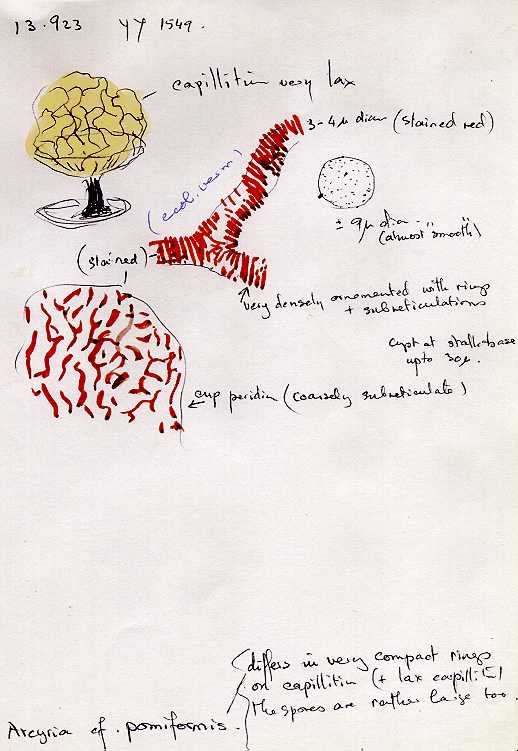 13.923 YY 1549.
capillitiu very lax
3-4µ diam (stained red)
(ecol. verm.)
± 9µ dia.
(almost "smooth")
(stained)
very densely ornamented with rings
+ subreticulations
cyst at stalk-base
upto 30µ.
cup peridiu (coarsely subreticulate)
differs in very compact rings
on capillitiu (+ lax capilliti
the spores are rather large too.
Arcyria cf. pomiformis.